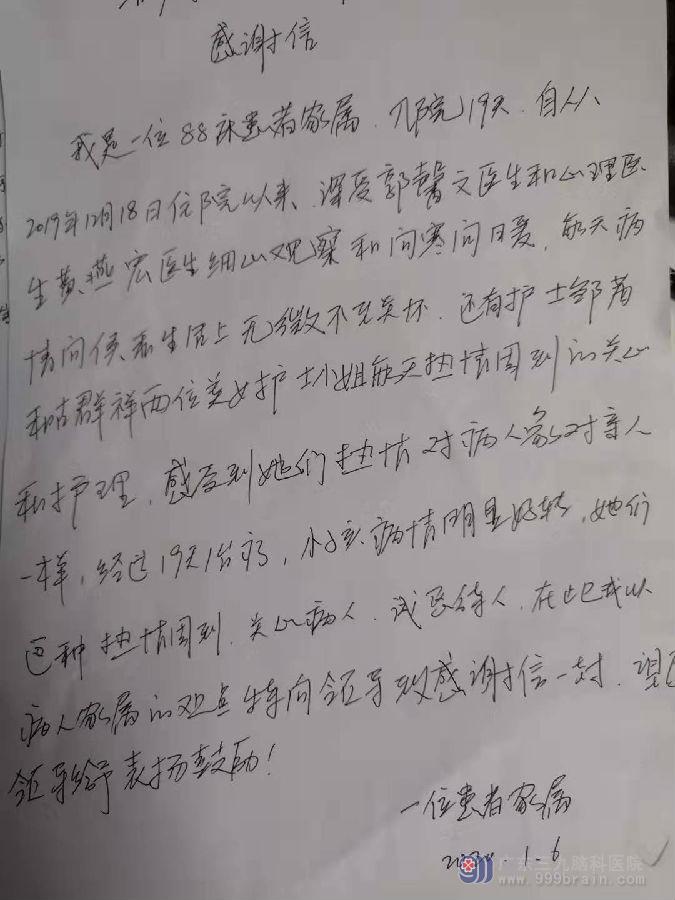 感谢信
我是一位88床患者家属，入院19天，自从
2019年12月18日住院以来，深受郭馨文医生和心理医
生黄燕宏医生细心观察和问寒问暖，每天病
情问候和生活上无微不至关怀，还有护士邹
和群祥两位美女护士小姐每天热情周到的关心
和护理，感受到她们热情对病人象对亲人
一样，经过19天治疗，小孩病情明显好转，她们
这种热情周到，关心病人，诚恳待人，在此我以
病人家属的观点特向领导致感谢信一封，望
领导给予表扬鼓励！
一位患者家属
2020.1-6
广东三九脑科医院
www.999brain.com